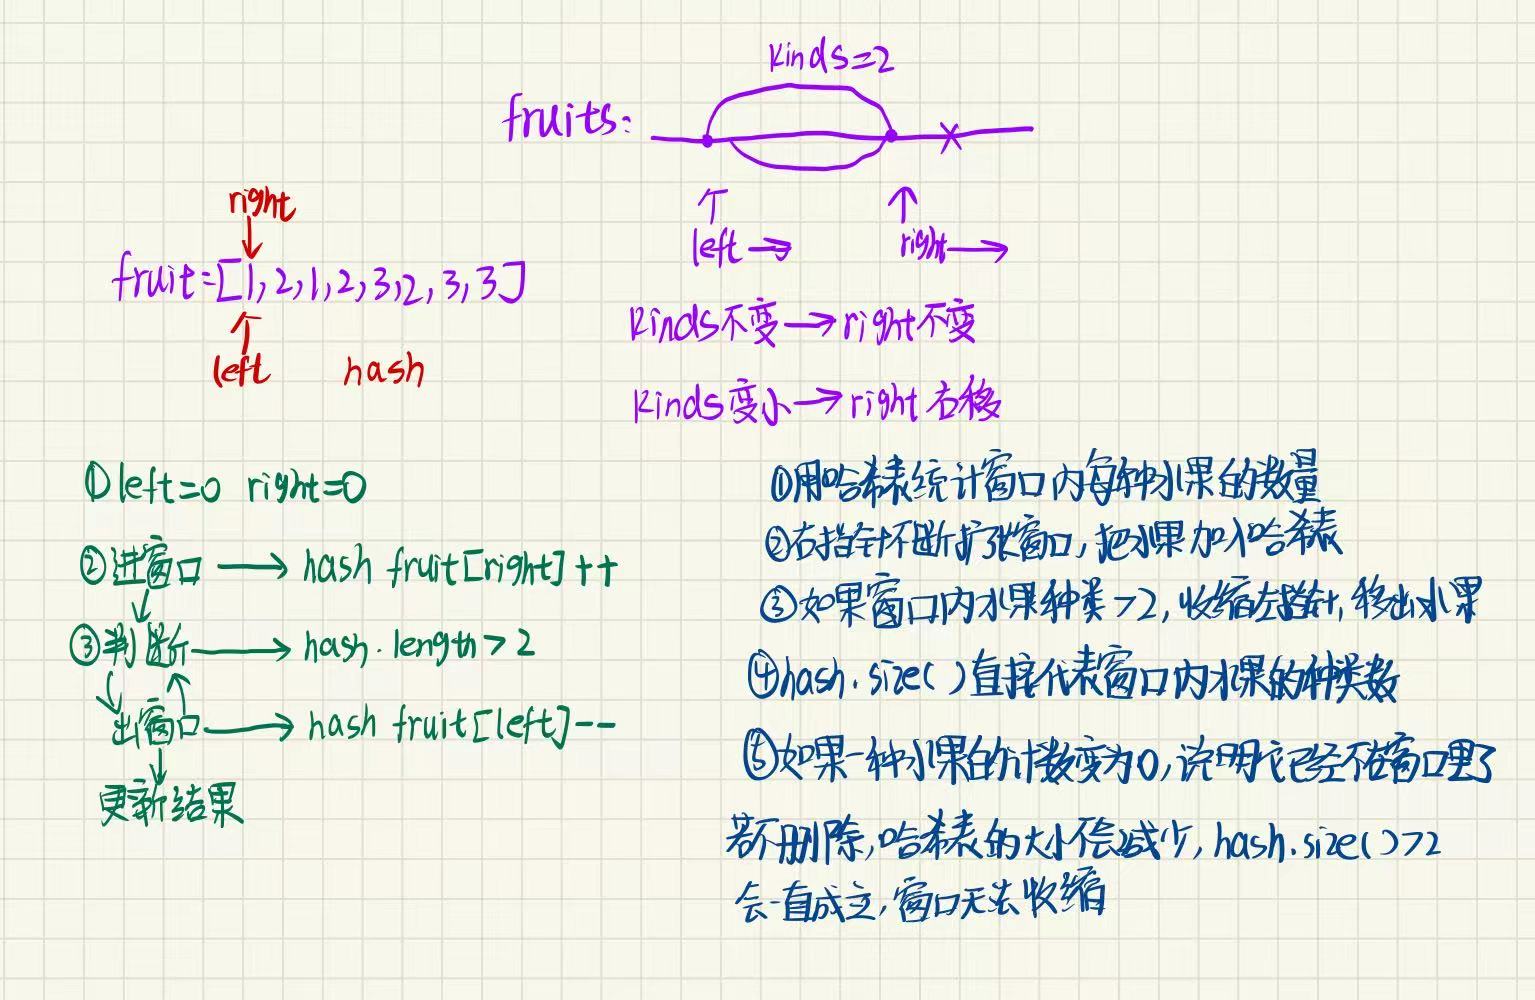 kinds=2
fruits:
left→
right→
right
fruit=[1,2,1,2,3,2,3,3]
left
hash
kinds不变→right不变
kinds变小→right右移
①left=0 right=0
②进窗口→hash fruit[right]++
③判断→hash.length>2
出窗口→hash fruit[left]--
更新结果
①用哈希表统计窗口内每种水果的数量
②右指针不断扩张窗口,把水果加入哈希表
③如果窗口内水果种类>2,收缩左指针,移出水果
④hash.size()直接代表窗口内水果的种类数
⑤如果一种水果的计数变为0,说明它已经不在窗口里了
若不删除,哈希表的大小不会减少,hash.size()>2
会一直成立,窗口无法收缩